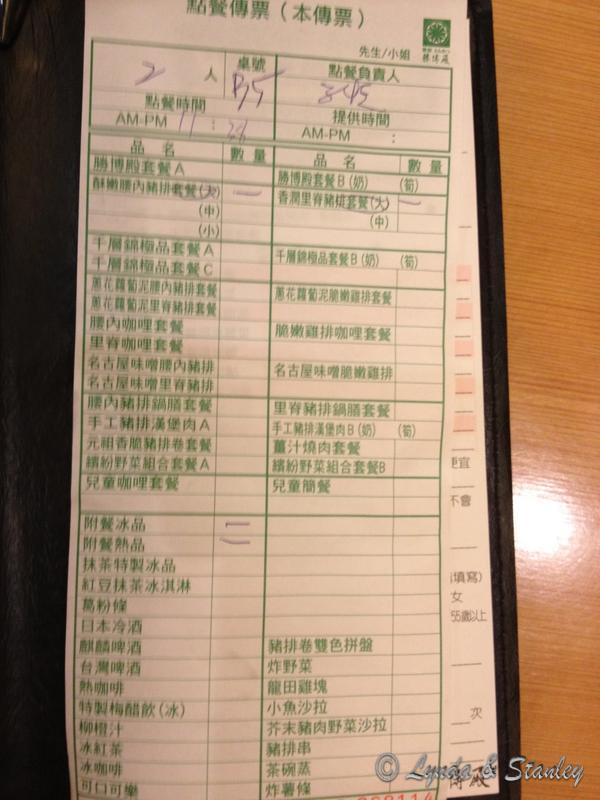 點餐傳票（本傳票）
勝博殿
先生/小姐
2 人 桌號 B5 點餐負責人
點餐時間 提供時間
AM-PM 11: AM-PM :
品名 數量 品名 數量
勝博殿套餐A 勝博殿套餐B(奶) (筍)
酥嫩腰內豬排套餐(大) 一 香潤里脊豬排套餐(大) 一
(中) (中)
(小)
千層錦極品套餐A 千層錦極品套餐B(奶) (筍)
千層錦極品套餐C
蔥花蘿蔔泥腰內豬排套餐 蔥花蘿蔔泥脆嫩雞排套餐
蔥花蘿蔔泥里脊豬排套餐
腰內咖哩套餐 脆嫩雞排咖哩套餐
里脊咖哩套餐
名古屋味噌腰內豬排 名古屋味噌脆嫩雞排
名古屋味噌里脊豬排
腰內豬排鍋膳套餐 里脊豬排鍋膳套餐
手工豬排漢堡肉A 手工豬排漢堡肉B(奶) (筍)
元祖香脆豬排卷套餐 薑汁燒肉套餐
繽紛野菜組合套餐A 繽紛野菜組合套餐B
兒童咖哩套餐 兒童簡餐
附餐冰品 二
附餐熱品
抹茶特製冰品
紅豆抹茶冰淇淋
葛粉條
日本冷酒
麒麟啤酒 豬排卷雙色拼盤
台灣啤酒 炸野菜
熱咖啡 龍田雞塊
特製梅醋飲(冰) 小魚沙拉
柳橙汁 芥末豬肉野菜沙拉
冰紅茶 豬排串
冰咖啡 茶碗蒸
可口可樂 炸薯條
便宜
不會
(填寫)
女
55歲以上
次
© Lynda & Stanley